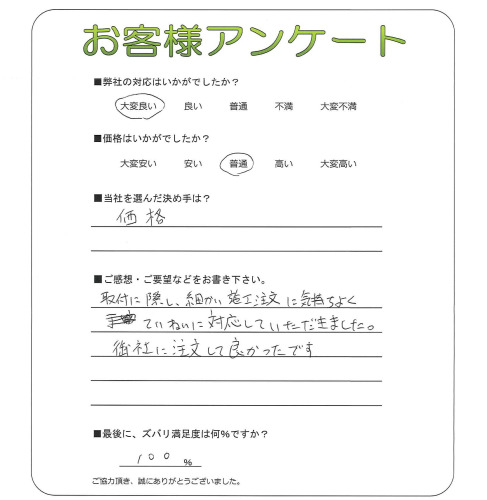 お客様アンケート
■弊社の対応はいかがでしたか?
大変良い 良い 普通 不満 大変不満
■価格はいかがでしたか?
大変安い 安い 普通 高い 大変高い
■当社を選んだ決め手は?
価格
■ご感想・ご要望などをお書き下さい。
取付に隠し、細かい施工注文に気持ちよく
ていねいに対応していただきました。
御社に注文して良かったです
■最後に、ズバリ満足度は何%ですか?
100 %
ご協力頂き、誠にありがとうございました。